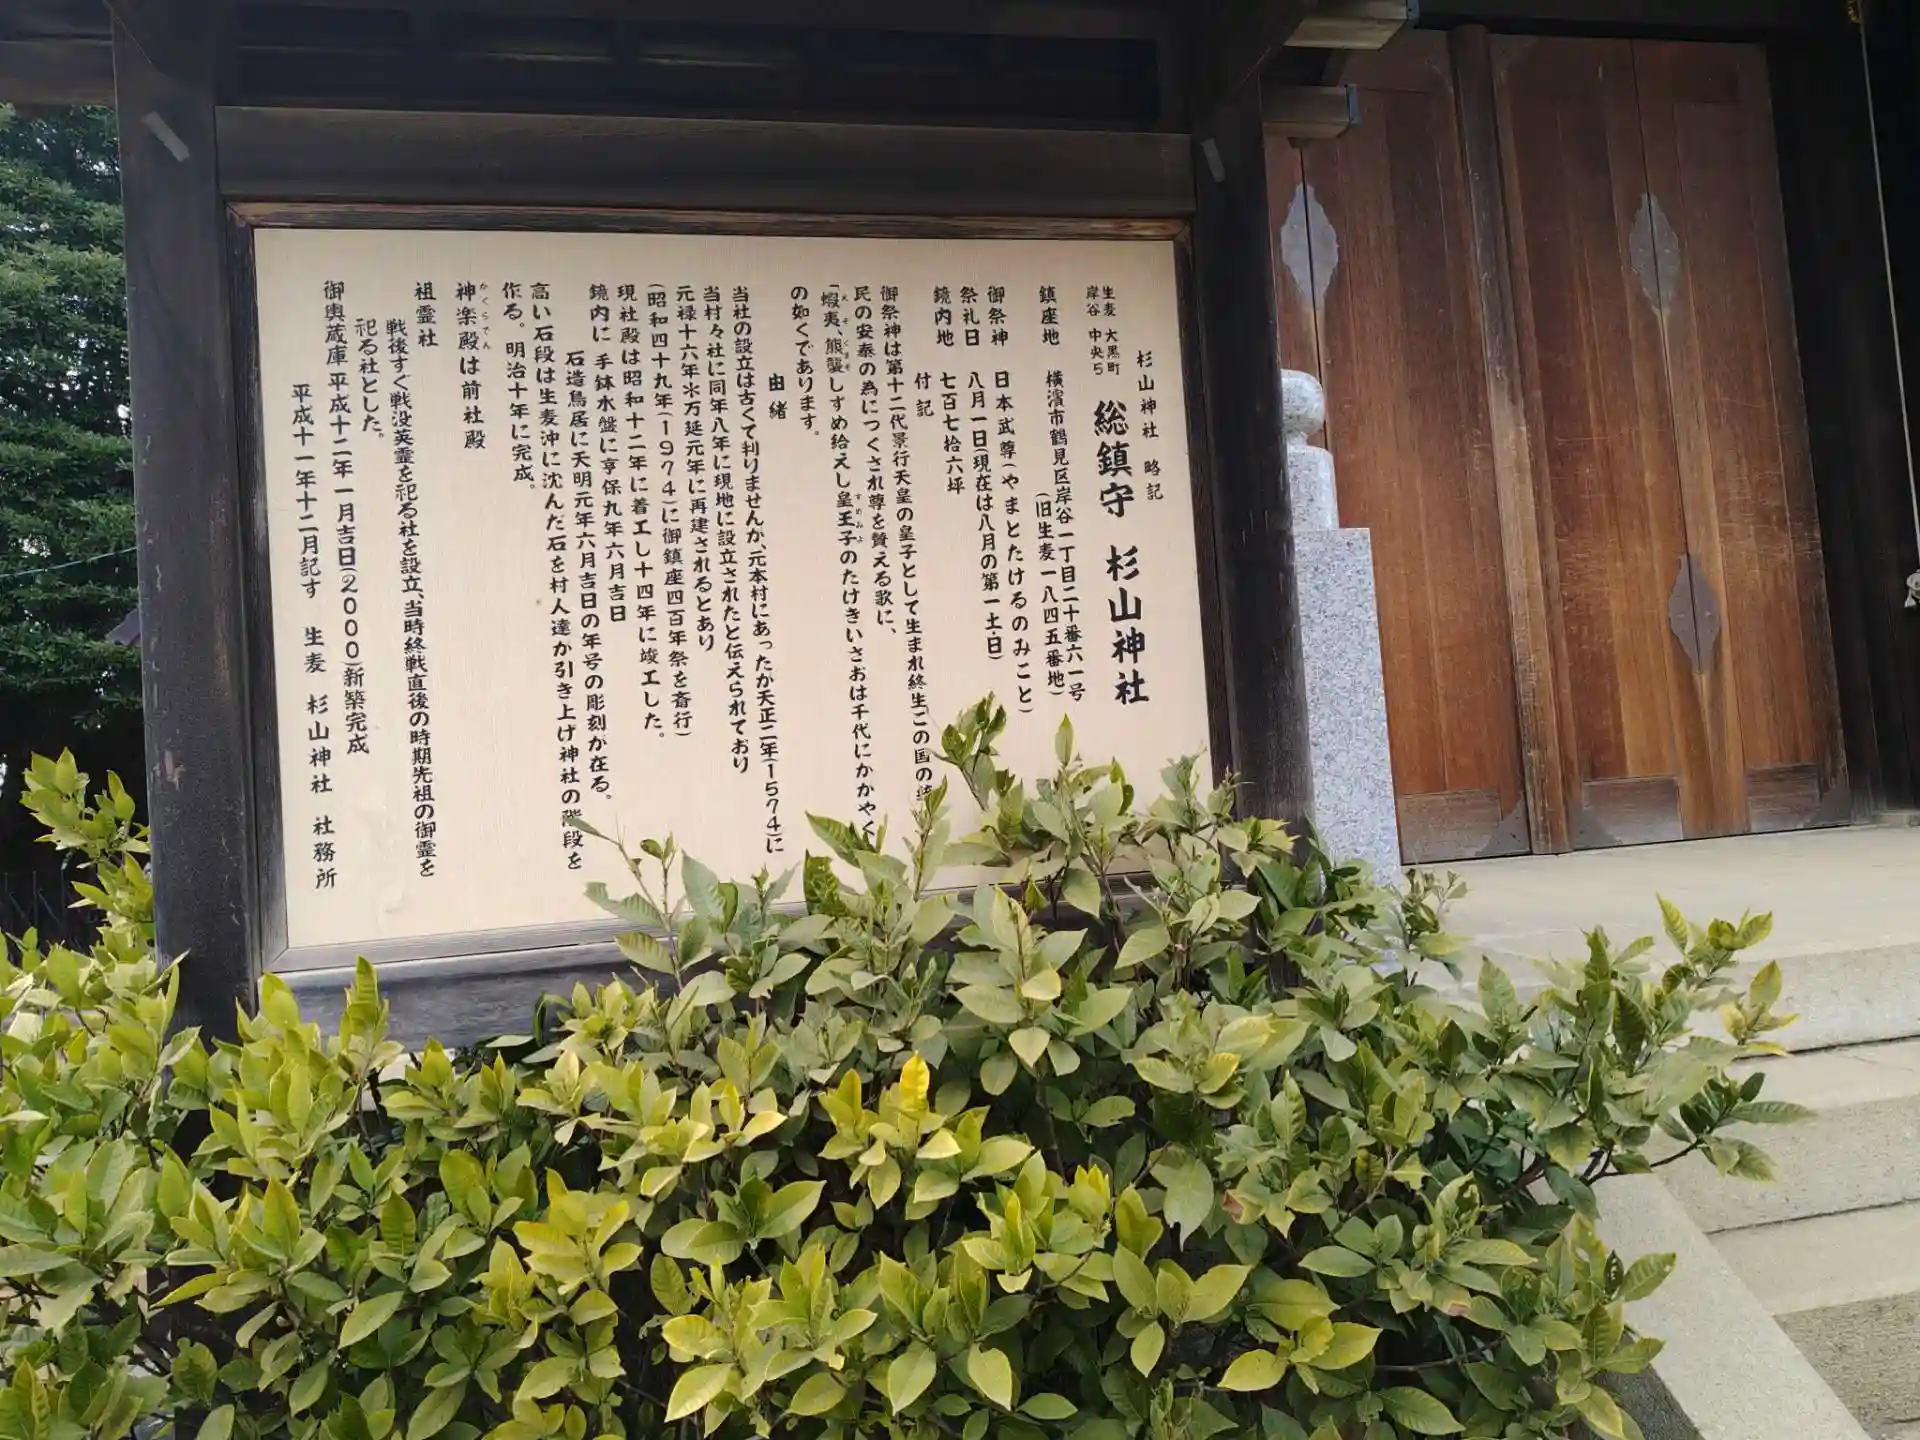 杉山神社 略記
生麦 大黒町
岸谷 中央5
総鎮守 杉山神社
鎮座地 横濱市鶴見区岸谷一丁目二十番六一号
(旧生麦一八四五番地)
御祭神 日本武尊(やまとたけるのみこと)
祭礼日 八月一日(現在は八月の第一土・日)
鏡内地 七百七拾六坪
付記
御祭神は第十二代景行天皇の皇子として生まれ終生この国の
民の安泰の為につくされ尊を賛える歌に、
「蝦夷、熊襲しずめ給えし皇王子のたけきいさおは千代にかかやく
えぞ くまそ すめみよ
の如くであります。
由緒
当社の設立は古くて判りませんが、元本村にあったが天正二年(1574)に
当村々社に同年八年に現地に設立されたと伝えられており
元禄十六年米万延元年に再建されるとあり
(昭和四十九年(1974)に御鎮座四百年祭を斎行)
現社殿は昭和十二年に着工し十四年に竣工した。
鏡内に 手鉢水盤に享保九年六月吉日
石造鳥居に天明元年六月吉日の年号の彫刻が在る。
高い石段は生麦沖に沈んだ石を村人達が引き上げ神社の階段を
作る。明治十年に完成。
神楽殿は前社殿
かくらでん
祖霊社
戦後すぐ戦没英霊を祀る社を設立、当時終戦直後の時期先祖の御霊を
祀る社とした。
御輿蔵庫 平成十二年一月吉日(2000)新築完成
平成十一年十二月記す 生麦 杉山神社 社務所